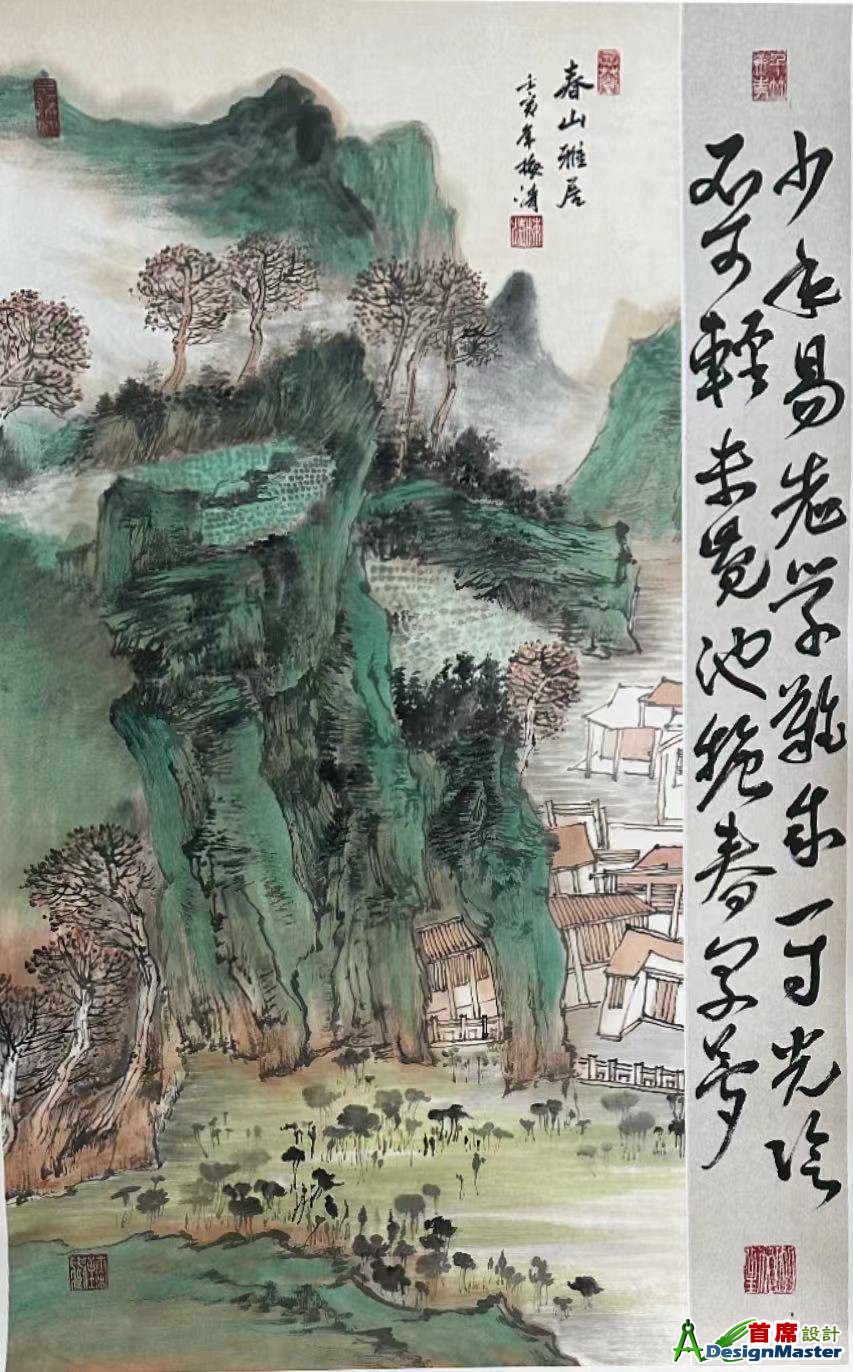 少年易老学難成一寸光陰
不可輕未覺池塘春草夢
春山雅居
壬寅年梅
首席設計
DesignMaster